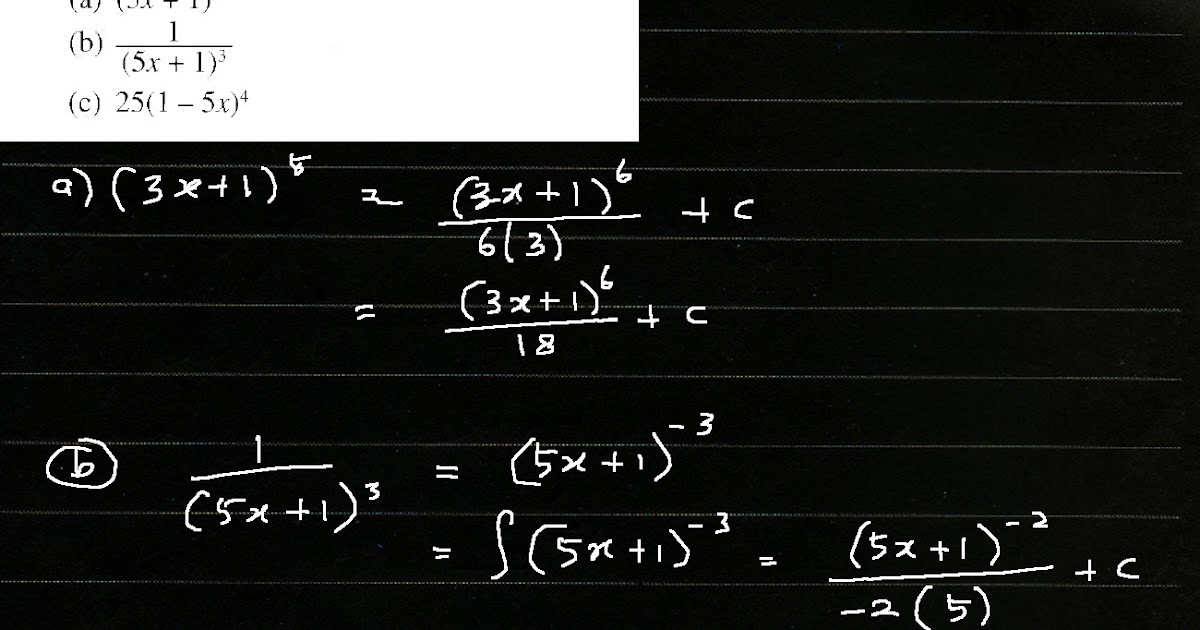 (b) 1/(5x + 1)³
(c) 25(1 – 5x)⁴
a) (3x+1)⁵ = (3x+1)⁶/6(3) + c
= (3x+1)⁶/18 + c
(b) 1/(5x+1)³ = (5x+1)⁻³
= ∫(5x+1)⁻³ = (5x+1)⁻²/-2(5) + c